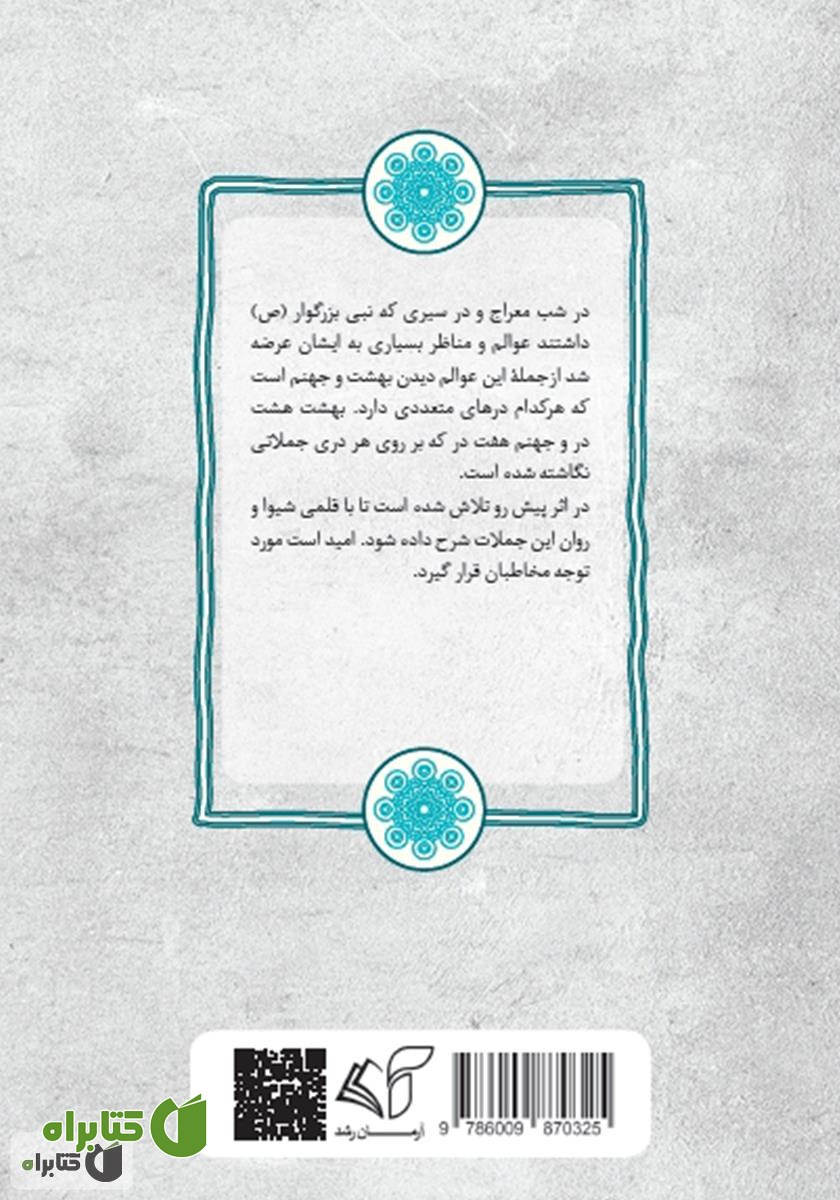 در شب معراج و در سیری که نبی بزرگوار (ص)
داشتند عوالم و مناظر بسیاری به ایشان عرضه
شد ازجملۀ این عوالم دیدن بهشت و جهنم است
که هرکدام درهای متعددی دارد. بهشت هشت
در و جهنم هفت در که بر روی هر دری جملاتی
نگاشته شده است.
در اثر پیش رو تلاش شده است تا با قلمی شیوا و
روان این جملات شرح داده شود. امید است مورد
توجه مخاطبان قرار گیرد.
آرمان رشد
9 786009 870325
کتابراه
کتابراه